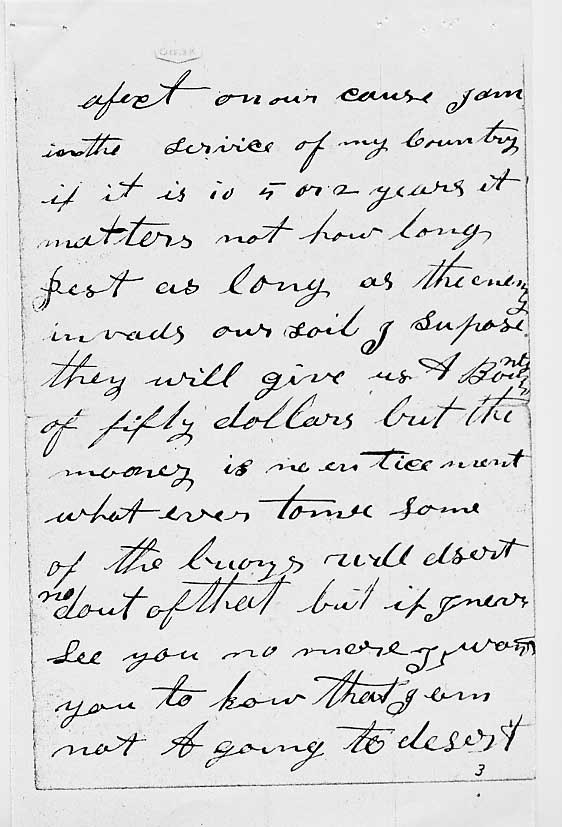 afect on our cause I am
in the service of my Country
if it is 10 5 or 2 years it
matters not how long
jest as long as the enemy
invads our soil I supose
they will give us A Bounty
of fifty dollars but the
mooney is no enticement
what ever to mee some
of the buoys will desert
no dout of that but if I never
see you no more I want
you to kow that I am
not A going to desert
3